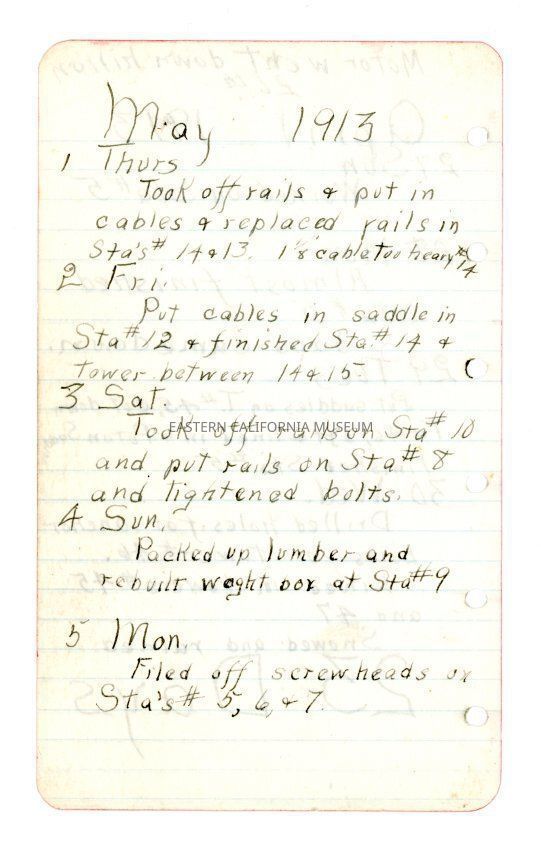 May 1913
1 Thurs
Took off rails & put in
cables & replaced rails in
Sta's # 14 & 13. 1⅛ cable too heavy #14
2 Fri.
Put cables in saddle in
Sta # 12 & finished Sta. # 14 &
tower between 14 & 15.
3 Sat.
Took off rails on Sta # 10
EASTERN CALIFORNIA MUSEUM
and put rails on Sta # 8
and tightened bolts.
4 Sun.
Packed up lumber and
rebuilt weght box at Sta # 9
5 Mon.
Filed off screwheads on
Sta's # 5, 6, & 7.